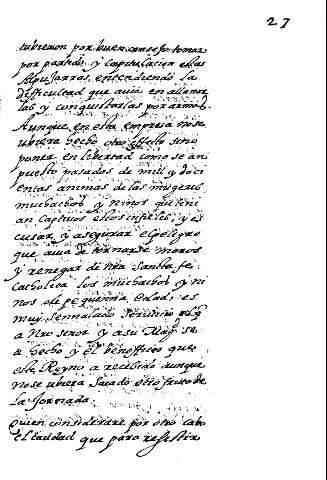 27
tubieron por buen consejo tomar
por partidos y capitulacion en las
Alpujarras, entendiendo la
difficultad que auia en allanar
las y conquistarlas por armas.
Aunque en esta empresa no se
ubiera hecho otro effecto sino
poner en libertad como se an
puesto pasadas de mill y doci
entas animas de las mugeres
muchachos y niños que teni
an captiuos estos infieles, y es
cusar y asegurar el peligro
que auia de tornarse moros
y renegar de nra Sancta fe
Catholica los muchachos y ni
nos de pequeña edad, es
muy sennalado seruicio el q
a Nro Señor y a su Magd se
a hecho y el beneficio que
este Reyno a recibido aunque
no se ubiera sacado otro fructo de
la Jornada.
Quien considerare por otro cabo
el caudal que para resistir